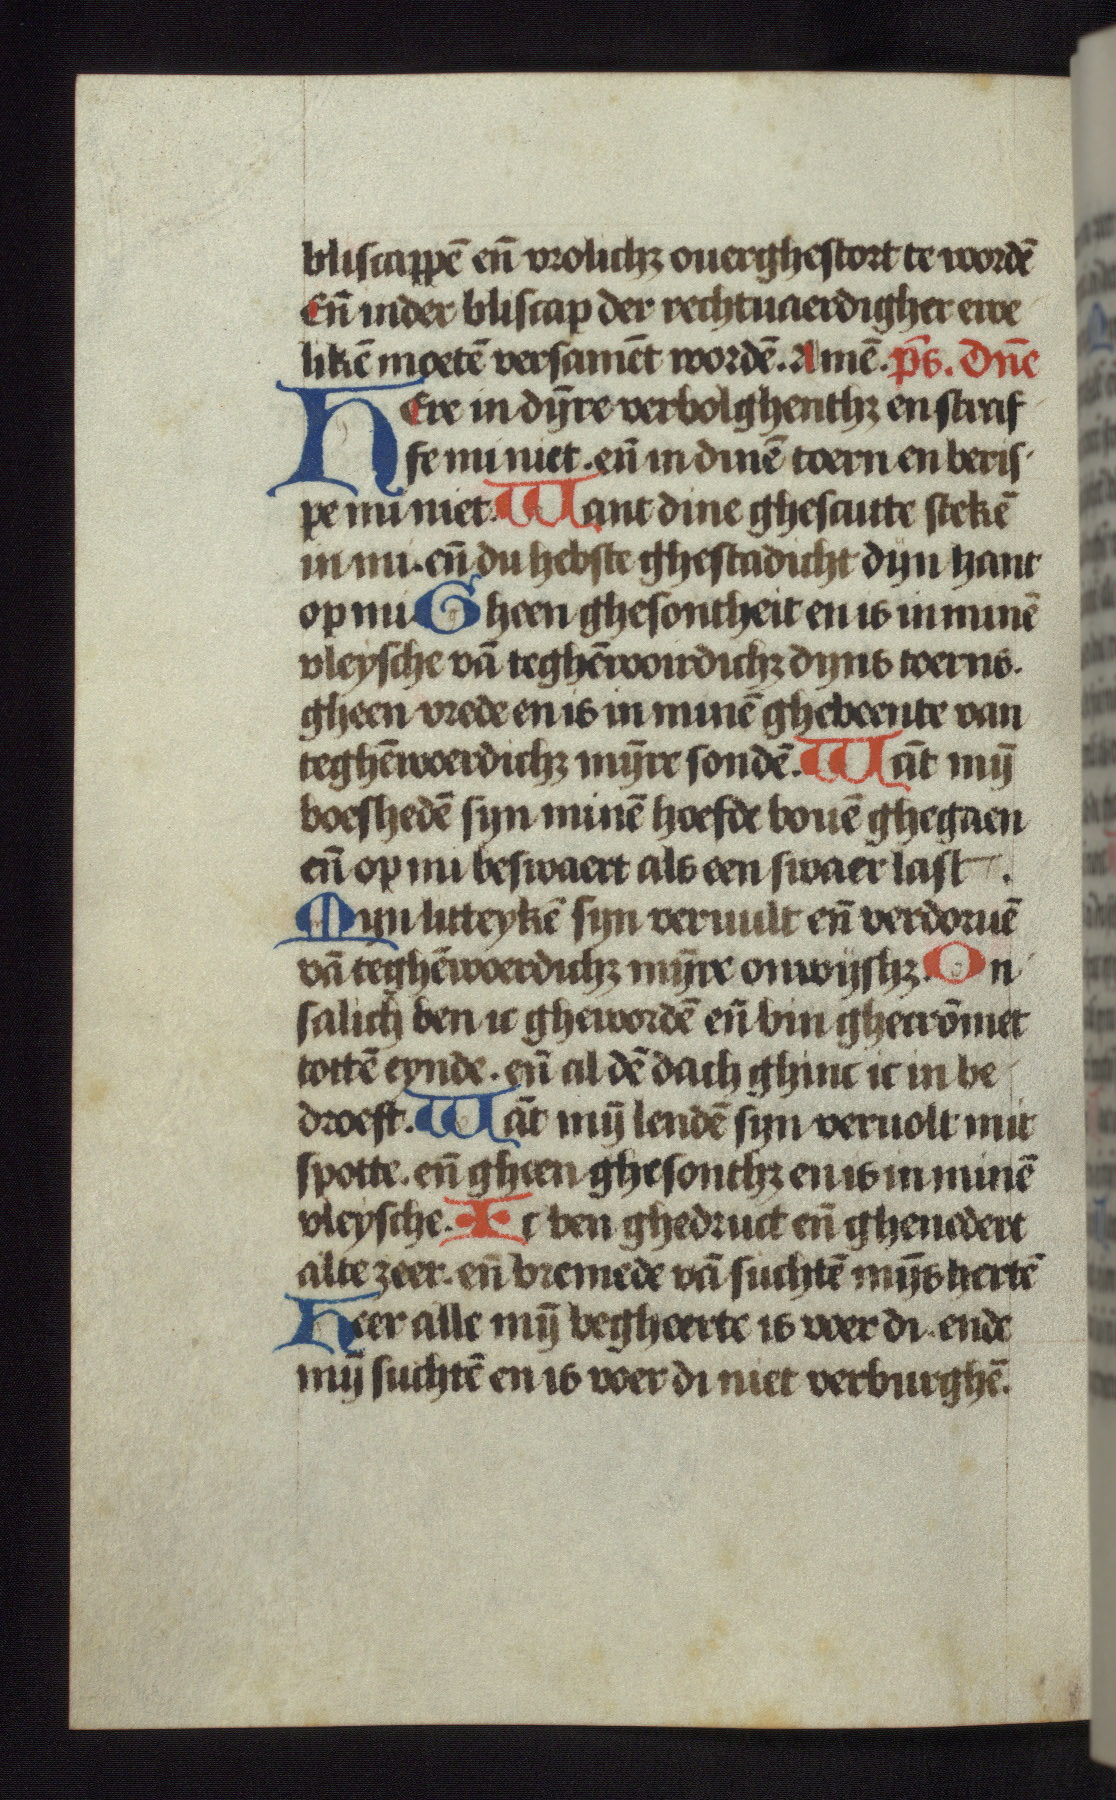 bliscappē eñ vrolichʒ ouerghestort te wordē
Eñ inder bliscap der rechtuaerdigher ewe
likē moetē versamēt wordē. Amē. p̄s. Dn̄e
HEre in dȳre verbolghenthʒ en straf
fe mi niet. eñ in dinē toern en beris
pe mi niet. Want dine ghescutte stekē
in mi. eñ du hebste ghestadicht dijn hant
op mi Gheen ghesontheit en is in minē
vleysche vā teghēwoirdichʒ dijns toerns.
gheen vrede en is in minē ghebeente van
teghēwoerdichʒ mȳre sondē. Wāt mȳ
boeshedē sijn minē hoefde bouē ghegaen
eñ op mi beswaert als een swaer last .
Mijn litteykē sijn veruult eñ verdoruē
vā teghēwoerdichʒ mȳre onwijshʒ. On
salich ben ic ghewordē eñ bin ghecrōmet
tottē eynde. eñ al dē dach ghinc ic in be
droeft. Wāt mȳ lendē sijn veruolt mit
spotte. eñ gheen ghesonthʒ en is in minē
vleysche. Ic ben ghedruct eñ ghenedert
alte zeer. eñ bremede vā suchtē mȳs hertē
Heer alle mȳ begheerte is voer di. ende
mȳ suchtē en is voer di niet verburghē.